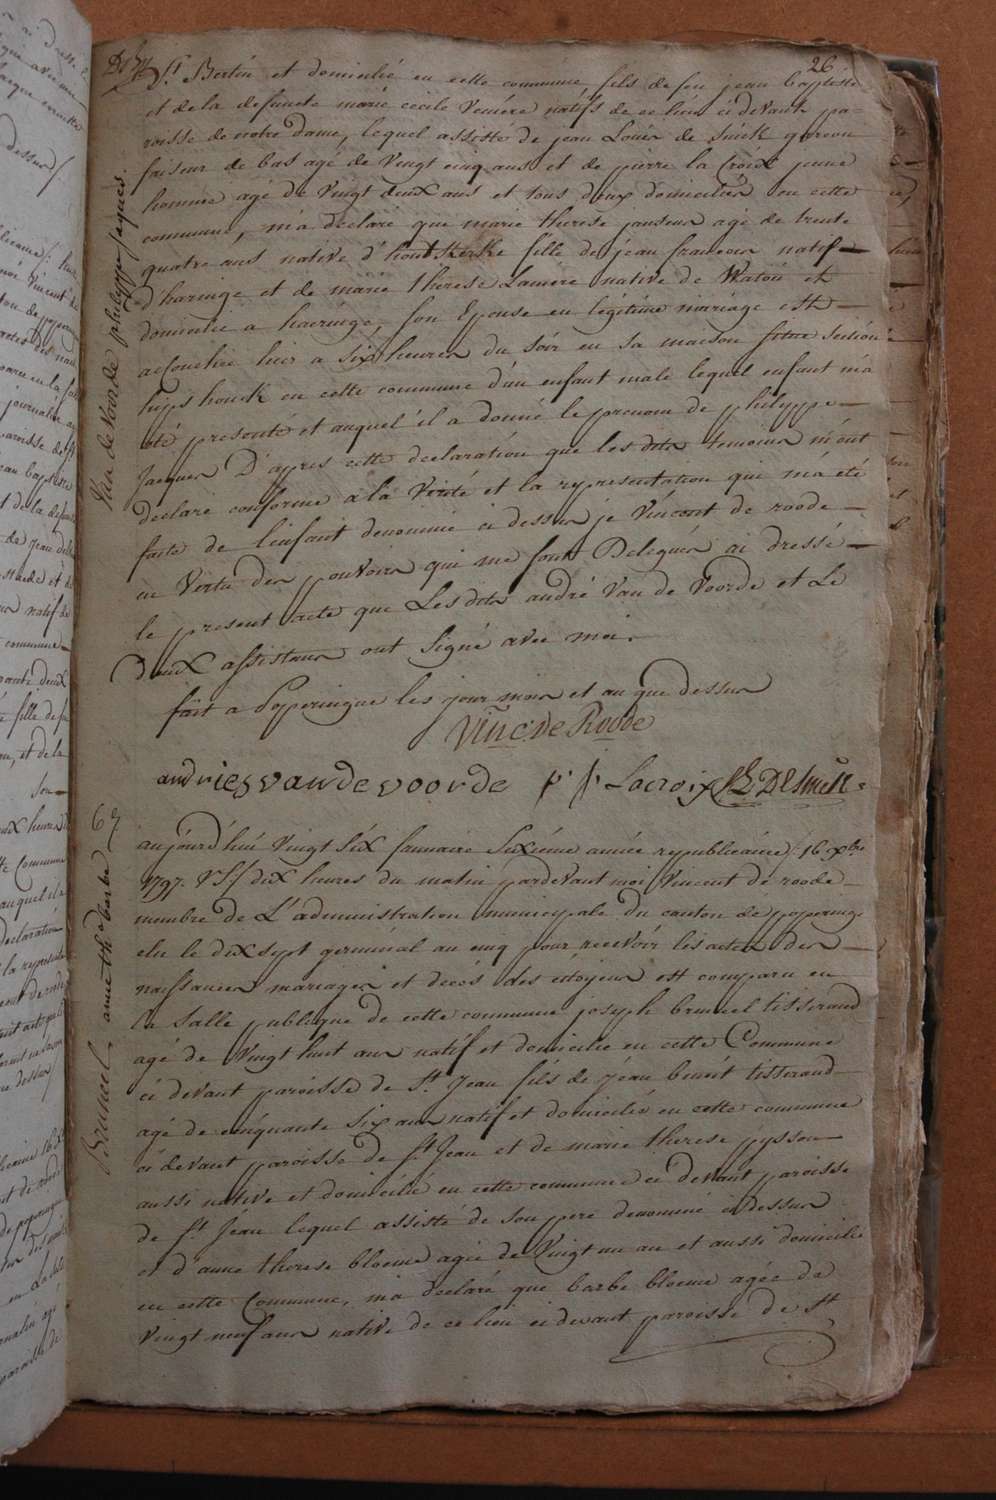 26
St Bertin et domicilié en cette commune fils de feu jean baptiste
et de la defuncte marie cecile Veniere natifs de ce lieu ci devant pa-
roisse de notre Dame, lequel assisté de jean Louis de Smick garcon
faiseur de bas agé de Vingt cinq ans et de pierre la Croix jeune
homme agé de Vingt deux ans et tous deux domiciliés en cette
commune, m'a declaré que marie therese janssen agé de trente
quatre ans native d'houtkerke fille de jean francois natif
d'haringe et de marie therese Lamere native de Watou et
domicilie a haeringe, son Epouse en légitime mariage est
accouchée hier a six heures du soir en sa maison sise section
hipshouck en cette commune d'un enfant male lequel enfant m'a
été presenté et auquel il a donné le prenom de philyppe
Jacques D'apres cette declaration que les dits temoins m'ont
declaré conforme a la Verité et la representation qui m'a été
faite de l'enfant denommé ci dessus je Vincent de roode
en Vertu des pouvoirs qui me sont Delegués ai dressé
le present acte que Les dits andré Van de Voorde et Le
Deux assistans ont signé avec moi.
fait a Poperingue les jour mois et an que dessus
Vinc. De Roode
andries van de voorde p j Lacroix JL DeSmick
Van de Voorde philyppe jaques
67
Bruneel anne the barbe
aujourd'hui Vingt Six frimaire Sixième année republicaine /: 16 Xbre
1797. VS:/ dix heures du matin pardevant moi Vincent de roode
membre de L'administration municipale du canton de popering
elu le dix sept germinal an cinq pour recevoir les actes des
naissances mariages et decès des citoyens est comparu en
la Salle publique de cette commune joseph bruneel tisserand
agé de Vingt huit ans natif et domicilié en cette Commune
ci devant paroisse de St Jean fils de jean benoit tisserand
agé de cinquante six ans natif et domicilié en cette commune
ci devant paroisse de St Jean et de marie therese pysson
aussi native et domiciliée en cette commune ci devant paroisse
de St Jean lequel assisté de son pere denommé ci dessus
et d'anne therese bloeme agée de Vingt un an et aussi domicilié
en cette Commune, m'a declaré que barbe bloeme agée de
vingt neuf ans native de ce lieu ci devant paroisse de St